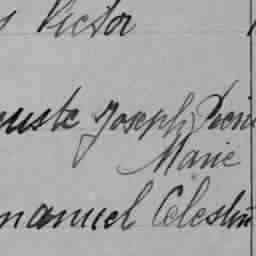 Victor
guste Joseph Pierre
Marie
manuel Celestin